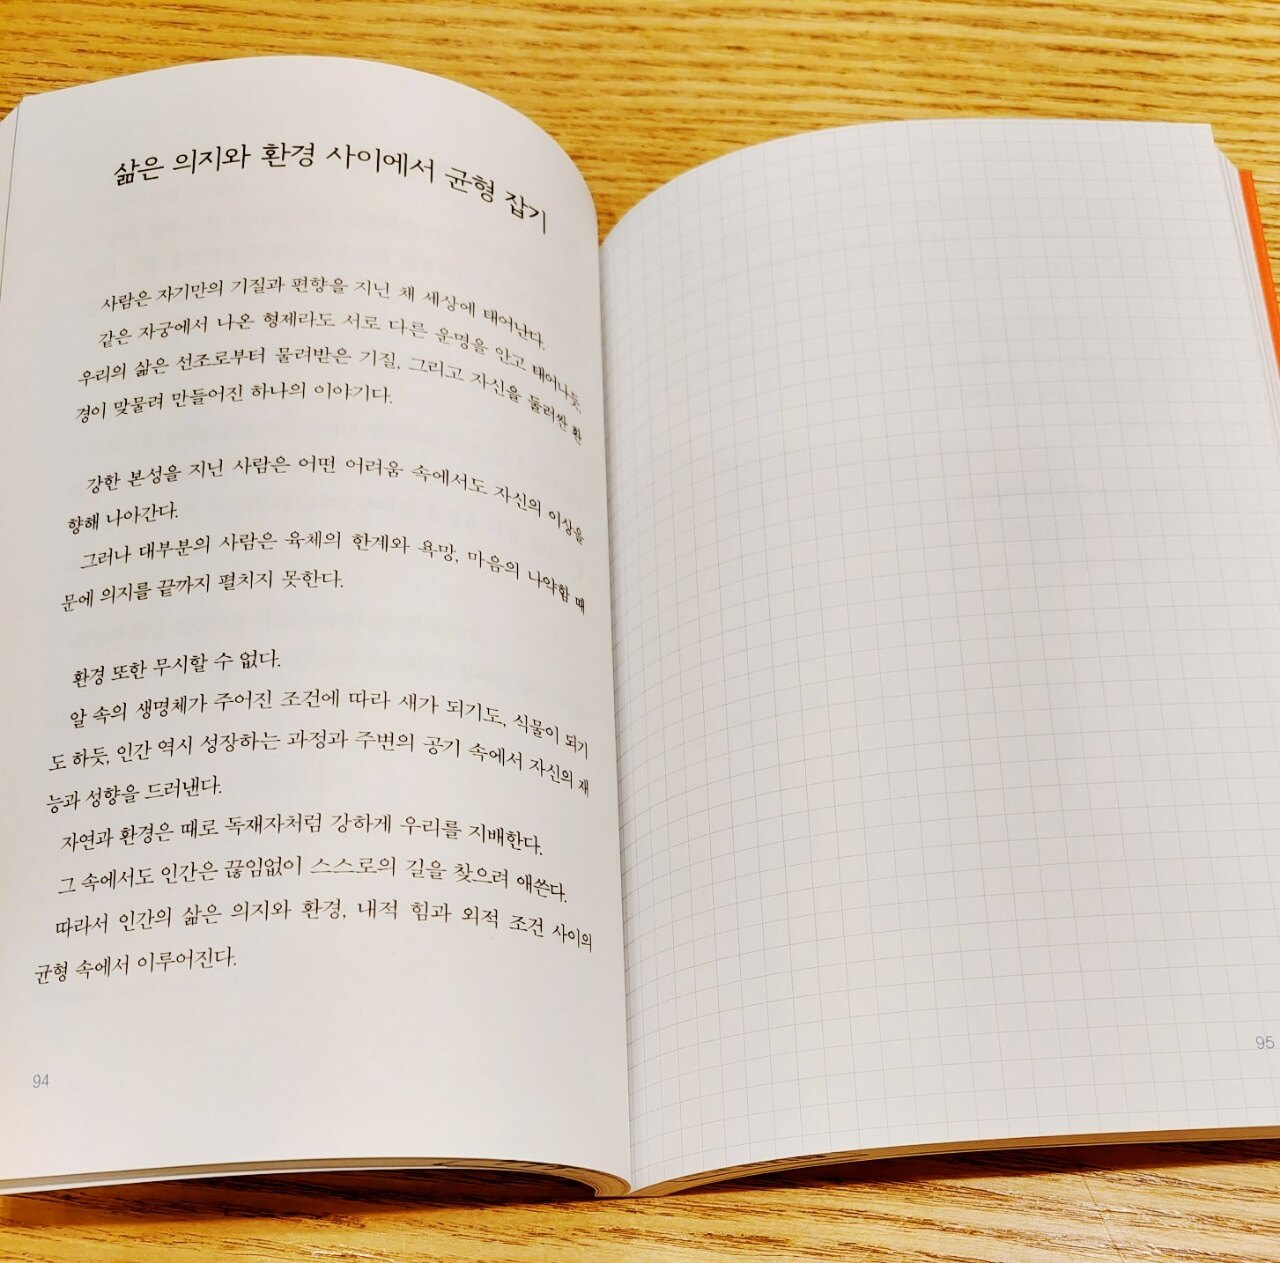 삶은 의지와 환경 사이에서 균형 잡기
사람은 자기만의 기질과 편향을 지닌 채 세상에 태어난다.
같은 자궁에서 나온 형제라도 서로 다른 운명을 안고 태어나듯,
우리의 삶은 선조로부터 물려받은 기질, 그리고 자신을 둘러싼 환
경이 맞물려 만들어진 하나의 이야기다.
강한 본성을 지닌 사람은 어떤 어려움 속에서도 자신의 이상을
향해 나아간다.
그러나 대부분의 사람은 육체의 한계와 욕망, 마음의 나약함 때
문에 의지를 끝까지 펼치지 못한다.
환경 또한 무시할 수 없다.
알 속의 생명체가 주어진 조건에 따라 새가 되기도, 식물이 되기
도 하듯, 인간 역시 성장하는 과정과 주변의 공기 속에서 자신의 재
능과 성향을 드러낸다.
자연과 환경은 때로 독재자처럼 강하게 우리를 지배한다.
그 속에서도 인간은 끊임없이 스스로의 길을 찾으려 애쓴다.
따라서 인간의 삶은 의지와 환경, 내적 힘과 외적 조건 사이의
균형 속에서 이루어진다.
94
95